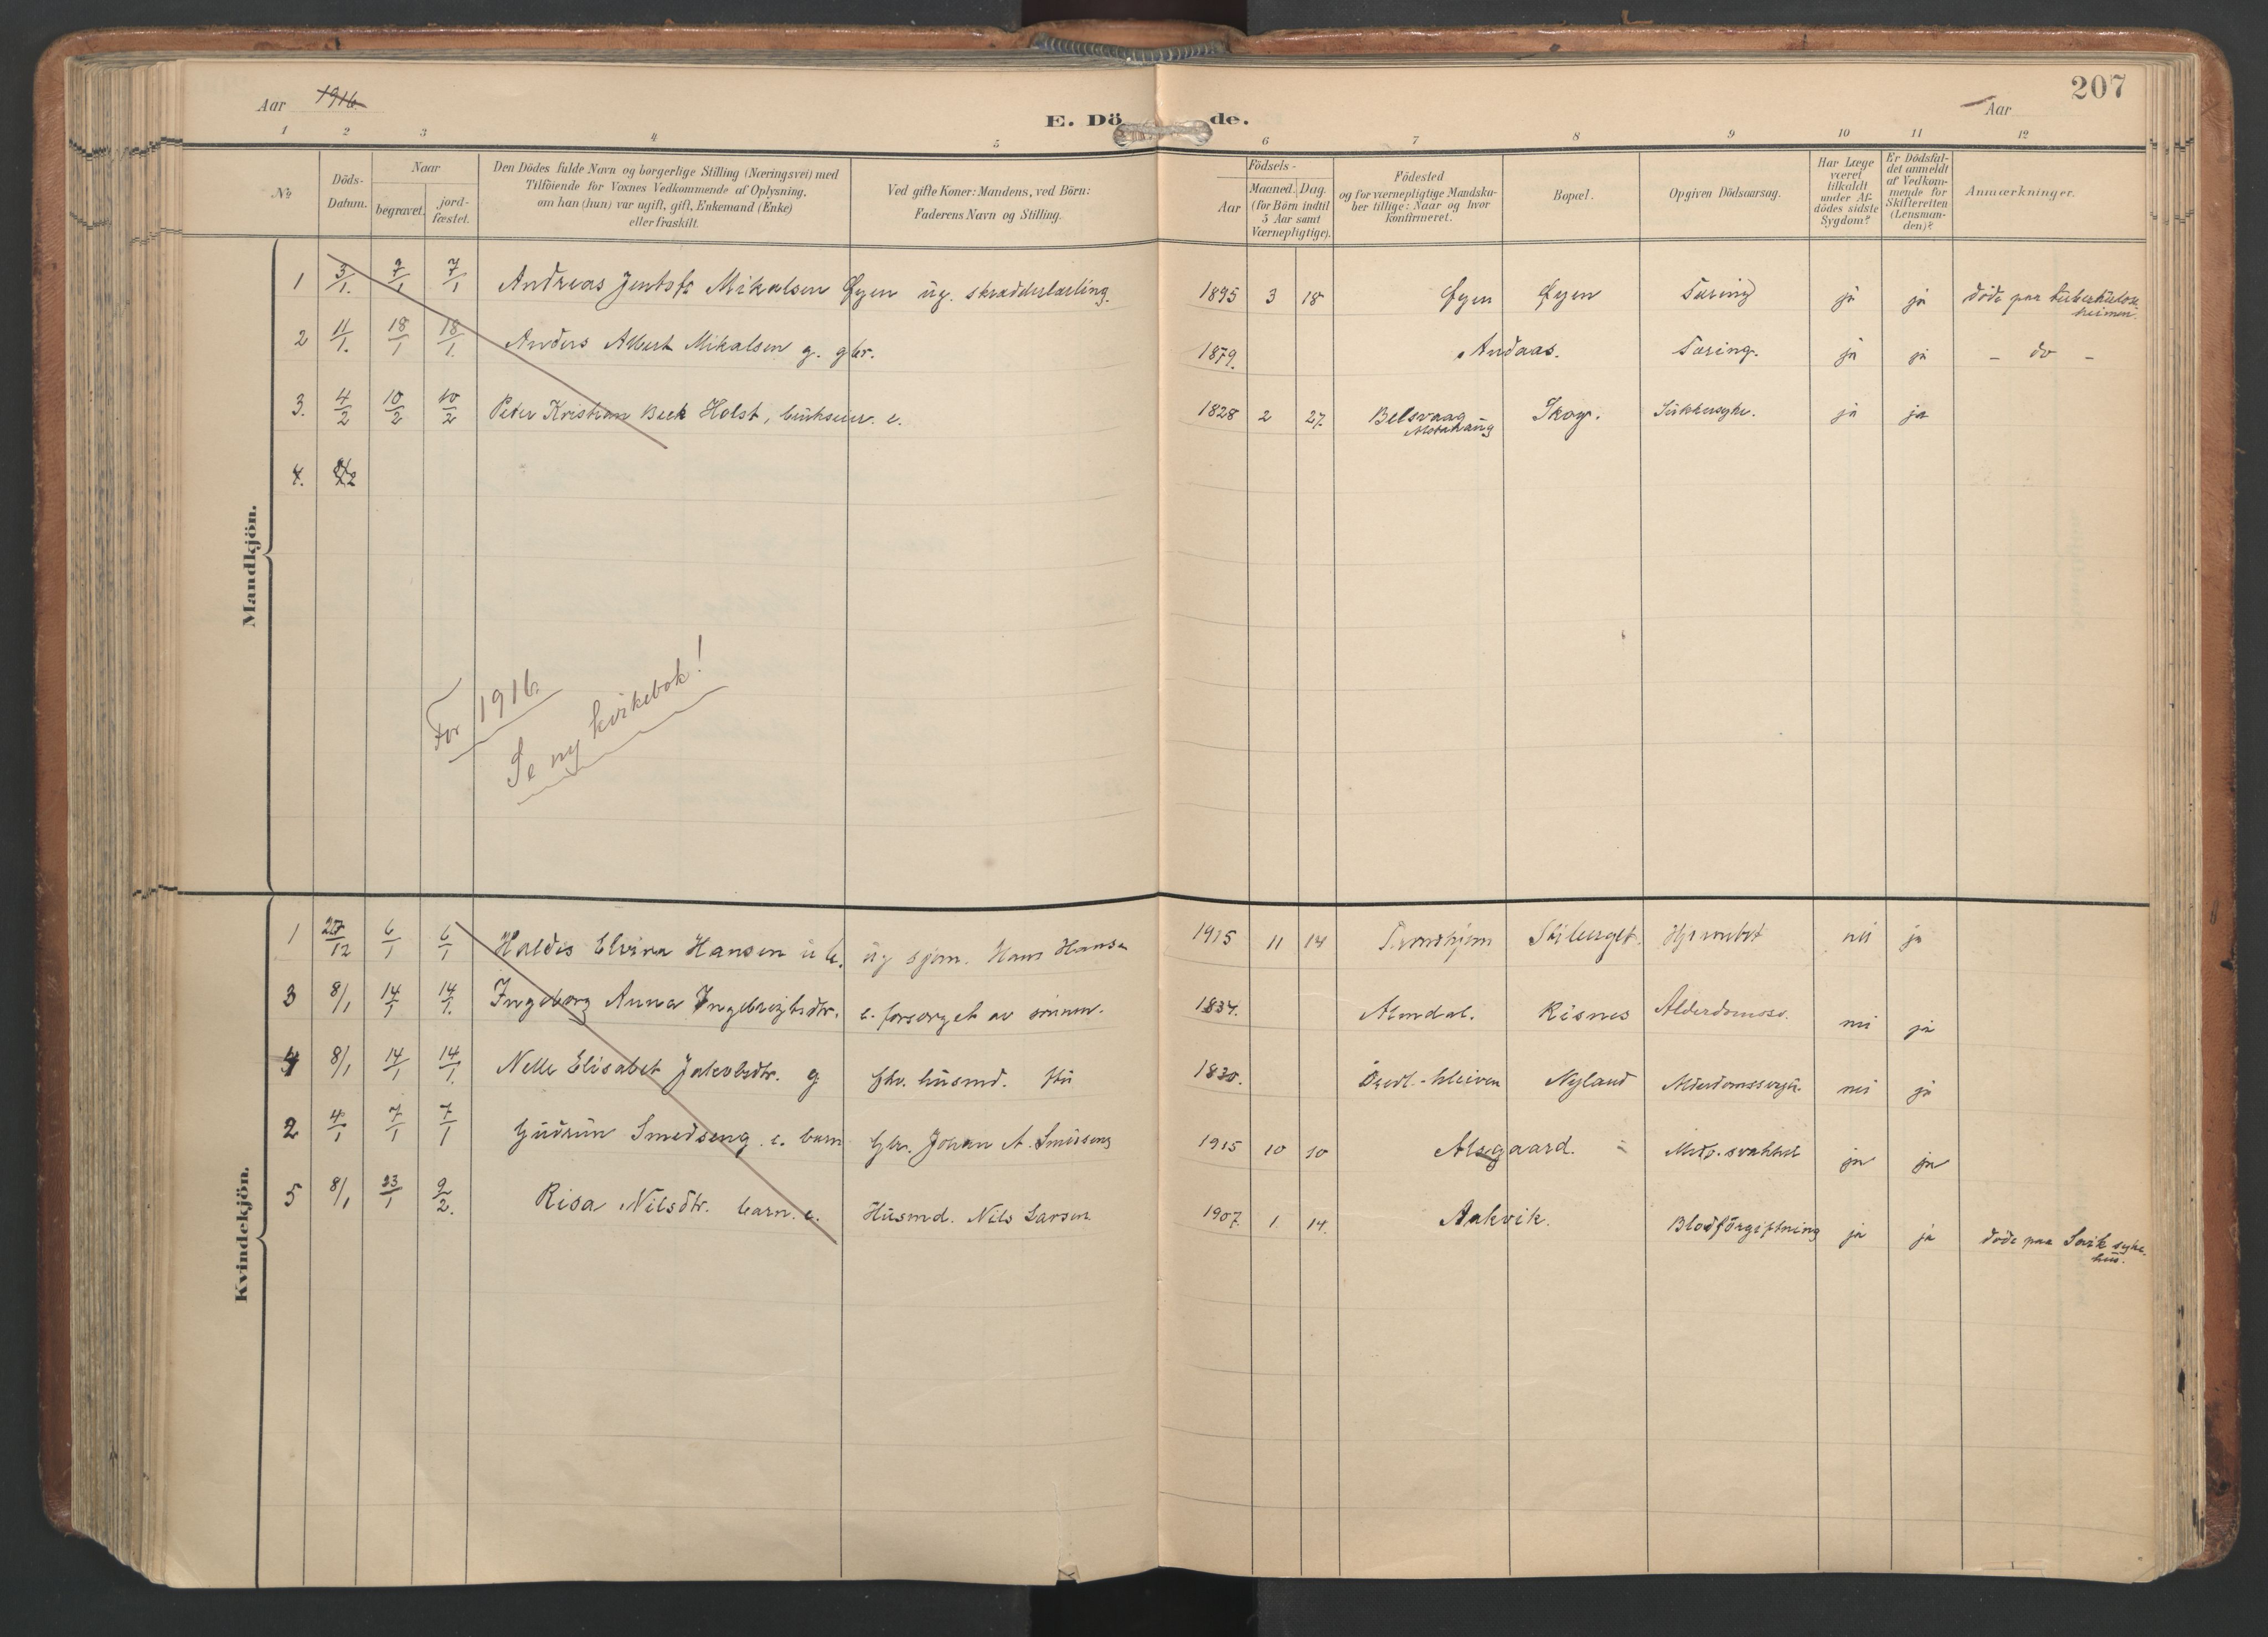 207
Aar 1916
Aar
E. Dö de.
1 2 3 4 5 6 7 8 9 10 11 12
No
Döds-Datum.
Naar
begravet.
jord-fæstet.
Den Dödes fulde Navn og borgerlige Stilling (Næringsvei) med
Tilföiende for Voxnes Vedkommende af Oplysning,
om han (hun) var ugift, gift, Enkemand (Enke)
eller fraskilt.
Ved gifte Koner: Mandens, ved Börn:
Faderens Navn og Stilling.
Födsels-
Aar
Maaned. Dag.
(for Börn indtil
5 Aar samt
Værnepligtige).
Födested
og for værnepligtige Mandska-
ber tillige: Naar og hvor
konfirmeret.
Bopæl.
Opgiven Dödsaarsag.
Har Læge
været
tilkaldt
under Af-
dödes sidste
Sygdom?
Er Dödsfal-
det anmeldt
af Vedkom-
mende for
Skifteretten
(Lensman-
den)?
Anmærkninger.
Mandkjön.
1 3/1. 7/1 7/1 Andreas Mikalsen Øyen ug. skrædderlærling. 1895 3 18 Øyen Øyen Tæring ja ja døde paa tuberkulose
heimen.
2 11/1. 18/1 18/1. Anders Albert Mikalsen g. gbr. 1879. Andaas. Tæring. ja ja – do –
3. 4/2 10/2 10/2 Peter Kristian Beck Holst, brukseier. e. 1828 2 27 Belsvaag
Alstahaug Skog. Sukkersyke. ja ja
4.
For 1916.
Se ny kvikebok!
Kvindekjön.
1 6/1 6/1 Haldis Elvira Hansen u b. ug sjøm. Hans Hansen 1915 11 14 Trondhjem nei ja
3 8/1 14/1 14/1. Ingeborg Anna Ingebrigtsdtr. e. forsørget av sønnen. 1834. Almdal. Risnes Alderdomssv. nei ja
4 8/1 14/1 14/1. Nelle Elisabet Jakobsdtr. g fhv. husmd. 1830. Nyland nei ja
2 4/1 7/1 7/1 Gudrun Smedseng. e. barn Gbr. Johan A. Smedseng 1915 10 10 Alsgaard. Medf. svakhet ja ja
5 8/1 23/1 2/2. Risa Nilsdtr. barn. e. Husmd. Nils Larsen 1907. 1 14. Aakvik. Blodforgiftning ja ja døde paa syke-
hus.